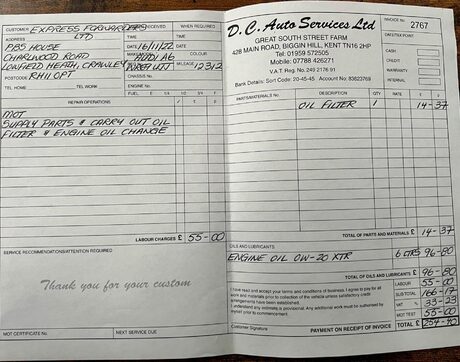 CUSTOMER EXPRESS FORWARDERS LTD
ADDRESS PBS HOUSE
CHARLWOOD ROAD
LOWFIELD HEATH, CRAWLEY
POSTCODE RH11 0PT
TEL. HOME TEL. WORK
RECEIVED WHEN REQUIRED
DATE 16/11/22
AUDI A6 COLOUR
MILEAGE 12312
CHASSIS No.
ENGINE No.
FUEL E 1/4 1/2 3/4 F
REPAIR OPERATIONS £
MOT
SUPPLY PARTS & CARRY OUT OIL
FILTER & ENGINE OIL CHANGE
LABOUR CHARGES £ 55-00
SERVICE RECOMMENDATIONS/ATTENTION REQUIRED
Thank you for your custom
MOT CERTIFICATE No. NEXT SERVICE DUE
D. C. Auto Services Ltd
GREAT SOUTH STREET FARM
428 MAIN ROAD, BIGGIN HILL, KENT TN16 2HP
Tel: 01959 572505
Mobile: 07788 426271
V.A.T. Reg. No. 249 2176 91
Bank Details: Sort Code: 20-45-45 Account No: 83623769
INVOICE No. 2767
DATE/TAX POINT
CASH
CREDIT
WARRANTY
INTERNAL
PARTS/MATERIALS No. DESCRIPTION QTY RATE £
OIL FILTER 1 14-37
TOTAL OF PARTS AND MATERIALS £ 14-37
OILS AND LUBRICANTS
ENGINE OIL 0W-20 XTR 6 LTRS 96-80
TOTAL OF OILS AND LUBRICANTS £ 96-80
I have read and accept your terms and conditions of business. I agree to pay for all
work and materials prior to collection of the vehicle unless satisfactory credit
arrangements have been established.
I understand any estimate is provisional. Any additional work must be authorised by
myself prior to commencement.
LABOUR 55-00
SUB TOTAL 166-17
VAT % 33-23
MOT TEST 55-00
TOTAL £ 254-40
Customer Signature PAYMENT ON RECEIPT OF INVOICE